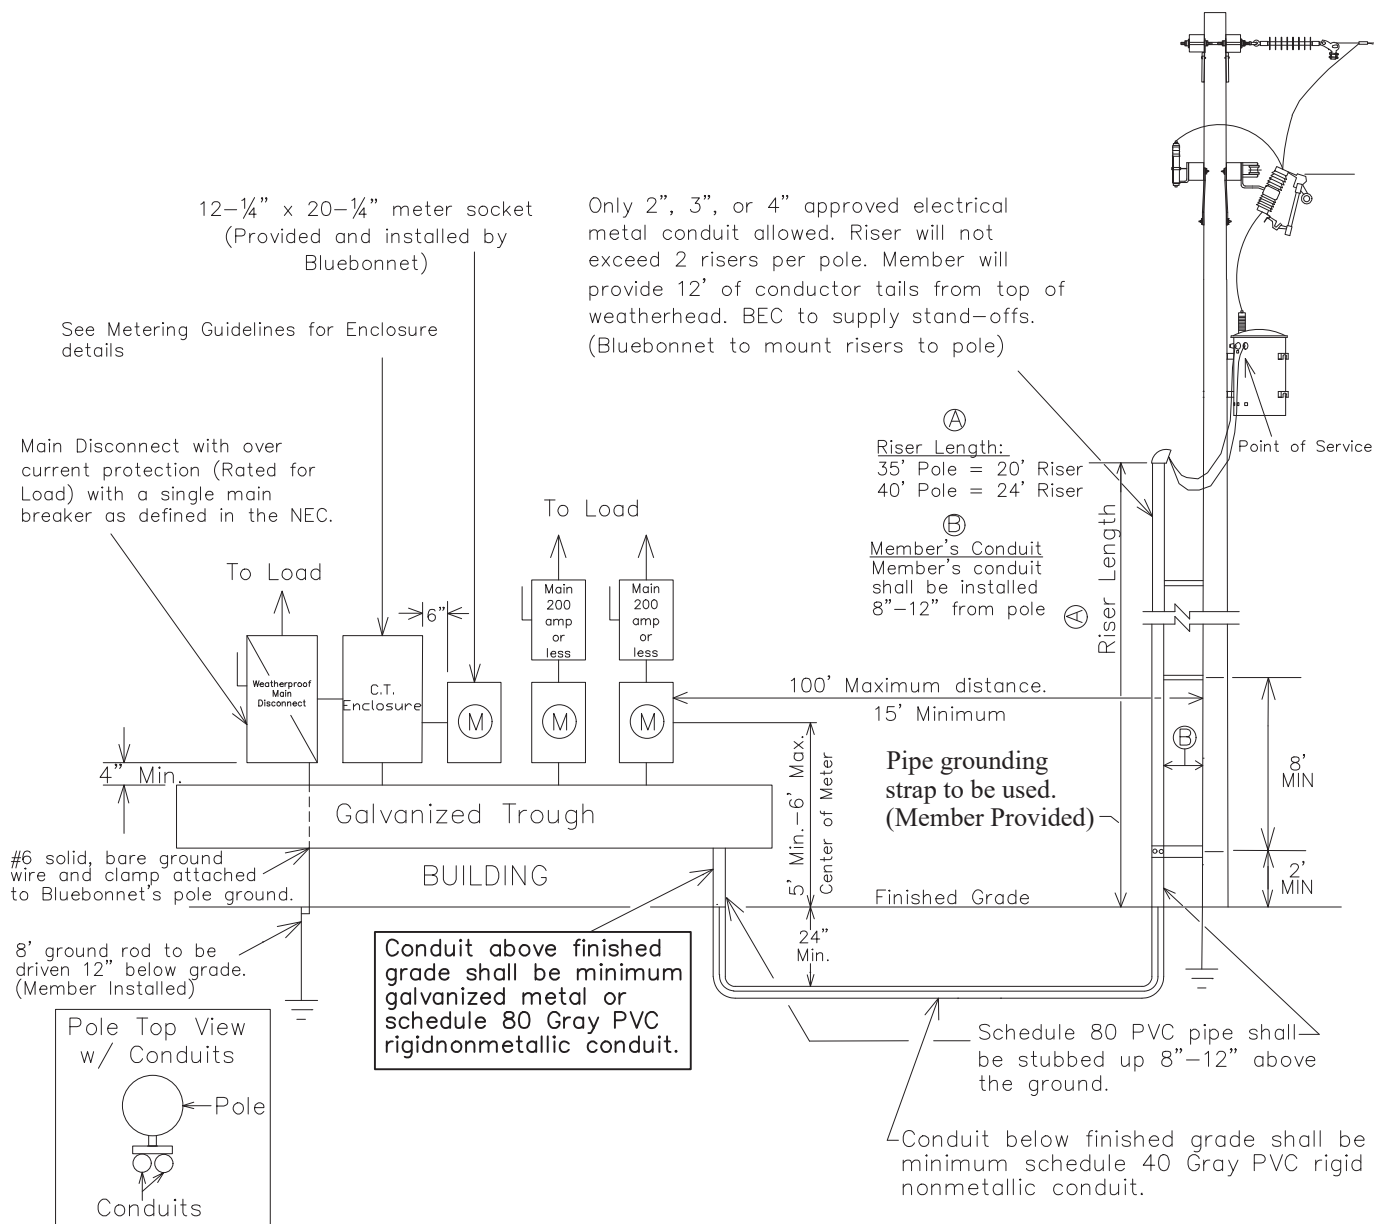 12-¼" x 20-¼" meter socket
(Provided and installed by
Bluebonnet)
Only 2", 3", or 4" approved electrical
metal conduit allowed. Riser will not
exceed 2 risers per pole. Member will
provide 12' of conductor tails from top of
weatherhead. BEC to supply stand-offs.
(Bluebonnet to mount risers to pole)
See Metering Guidelines for Enclosure
details
Main Disconnect with over
current protection (Rated for
Load) with a single main
breaker as defined in the NEC.
A
Riser Length:
35' Pole = 20' Riser
40' Pole = 24' Riser
B
Member's Conduit
Member's conduit
shall be installed
8"-12" from pole
Point of Service
To Load
To Load
6"
Main
200
amp
or
less
Main
200
amp
or
less
A
Riser Length
Weatherproof
Main
Disconnect
C.T.
Enclosure
M
M
M
100' Maximum distance.
15' Minimum
B
4" Min.
Galvanized Trough
5' Min.-6' Max.
Center of Meter
Pipe grounding
strap to be used.
(Member Provided)
8'
MIN
2'
MIN
#6 solid, bare ground
wire and clamp attached
to Bluebonnet's pole ground.
BUILDING
Finished Grade
8' ground rod to be
driven 12" below grade.
(Member Installed)
Conduit above finished
grade shall be minimum
galvanized metal or
schedule 80 Gray PVC
rigidnonmetallic conduit.
24"
Min.
Schedule 80 PVC pipe shall
be stubbed up 8"-12" above
the ground.
Conduit below finished grade shall be
minimum schedule 40 Gray PVC rigid
nonmetallic conduit.
Pole Top View
w/ Conduits
Pole
Conduits